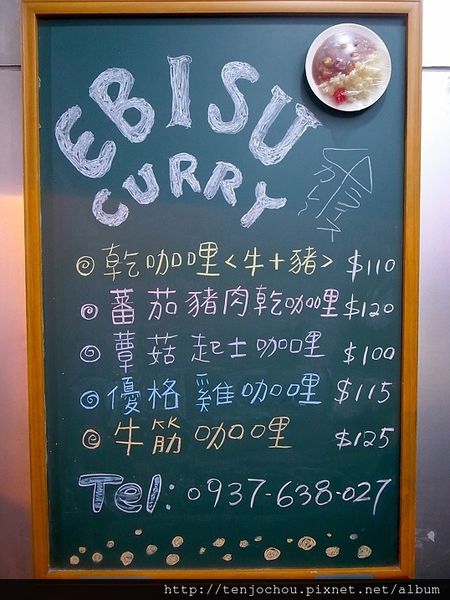 EBISU
CURRY
乾咖哩<牛+豬> $110
蕃茄豬肉乾咖哩 $120
蕈菇起士咖哩 $100
優格雞咖哩 $115
牛筋咖哩 $125
Tel: 0937-638-027
http://tenjochou.pixnet.net/album